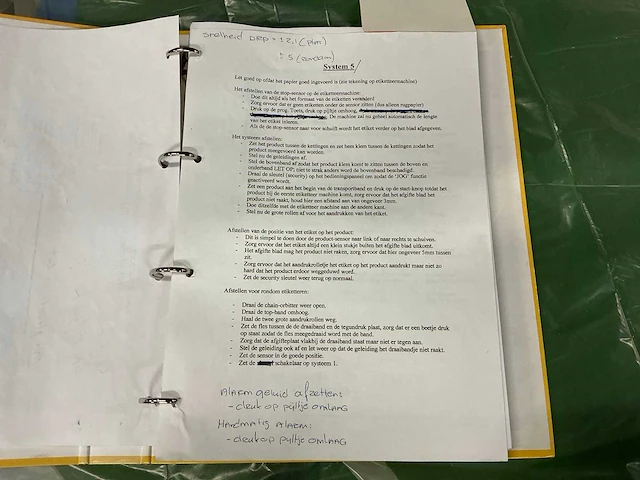 snelheid DRP = 12,1 (plm)
: 5 (rondom)
System 5
Let goed op ofdat het papier goed ingevoerd is (zie tekening op etiketteermachine)
Het afstellen van de stop-sensor op de etiketteermachine:
- Doe dit altijd als het formaat van de etiketten verandert!
- Zorg ervoor dat er geen etiketten onder de sensor zitten (dus alleen rugpapier).
- Druk op de prog. Toets, druk op pijltje omhoog,
De machine zal nu geheel automatisch de lengte
van het etiket inlezen.
- Als de de stop-sensor naar voor schuift wordt het etiket verder op het blad afgegeven.
Het systeem afstellen:
- Zet het product tussen de kettingen en zet hem klem tussen de kettingen zodat het
product meegevoerd kan worden.
- Stel nu de geleidingen af.
- Stel de bovenband af zodat het product klem komt te zitten tussen de boven en
onderband LET OP; niet te strak anders word de bovenband beschadigd.
- Draai de sleutel (security) op het bedieningspaneel om zodat de 'JOG' functie
geactiveerd wordt.
- Zet een product aan het begin van de transportband en druk op de start-knop totdat het
product bij de eerste etiketteer machine komt, zorg ervoor dat het afgifte blad het
product niet raakt, houd hier een afstand aan van ongeveer 3mm.
- Doe ditzelfde met de etiketteer machine aan de andere kant.
- Stel nu de grote rollen af voor het aandrukken van het etiket.
Afstellen van de positie van het etiket op het product:
- Dit is simpel te doen door de product-sensor naar link of naar rechts te schuiven.
- Zorg ervoor dat het etiket altijd een klein stukje buiten het afgifte blad uitkomt.
- Het afgifte blad mag het product niet raken, zorg ervoor dat hier ongeveer 3mm tussen
zit.
- Zorg ervoor dat het aandrukrolletje het etiket op het product aandrukt maar niet zo
hard dat het product erdoor weggeduwd word.
- Zet de security sleutel weer terug op normaal.
Afstellen voor rondom etiketteren:
- Draai de chain-orbitter weer open.
- Draai de top-band omhoog.
- Haal de twee grote aandrukrollen weg.
- Zet de fles tussen de de draaiband en de tegendruk plaat, zorg dat er een beetje druk
op staat zodat de fles meegedraaid word met de band.
- Zorg dat de afgifteplaat vlakbij de draaiband staat maar niet er tegen aan.
- Stel de geleiding ook af en let weer op dat de geleiding het draaibandje niet raakt.
- Zet de sensor in de goede positie.
- Zet de schakelaar op systeem 1.
Alarm geluid afzetten:
- druk op pijltje omlaag
Handmatig Alarm:
- druk op pijltje omlaag